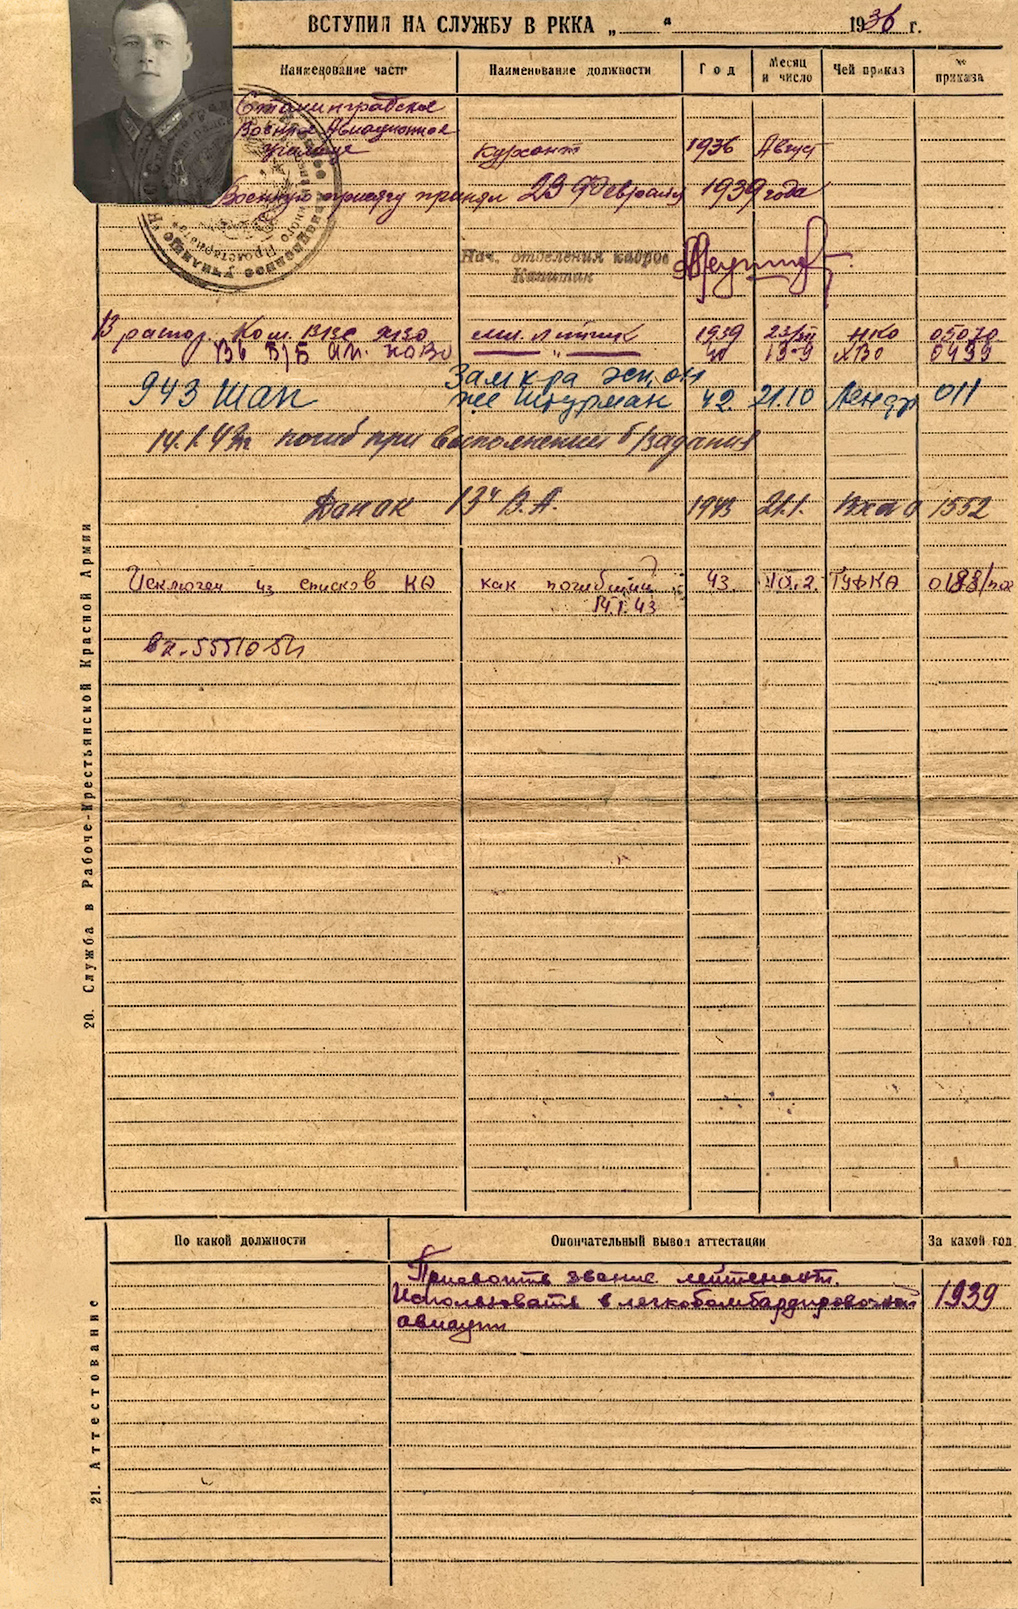 ВСТУПИЛ НА СЛУЖБУ В РККА „ “ 1936 г.
Наименование части Наименование должности Год Месяц и число Чей приказ № приказа
Сталинградское
Военное Авиационное
училище курсант 1936 Август
Военную присягу принял 23 Февраля 1939 года
Нач. отделения кадров
Капитан
В распор. Ком. ВВС ХВО мл. летчик 1939 23/XII НКО 05070
ХВО 0499
Зам к-ра эск, он
943 шап же штурман 42. 21.10 Ленфр 011
14.1.43г. погиб при выполнении б/задания
Донок 13й В.А. 1943 21.1. 1552
Исключен из списков КА как погибший 43. 10.2. ГУФКА 0188/
14.1.43
20. Служба в Рабоче-Крестьянской Красной Армии
По какой должности Окончательный вывод аттестации За какой год
Присвоить звание лейтенант.
Использовать в легкобомбардировочной 1939
авиации
21. Аттестование